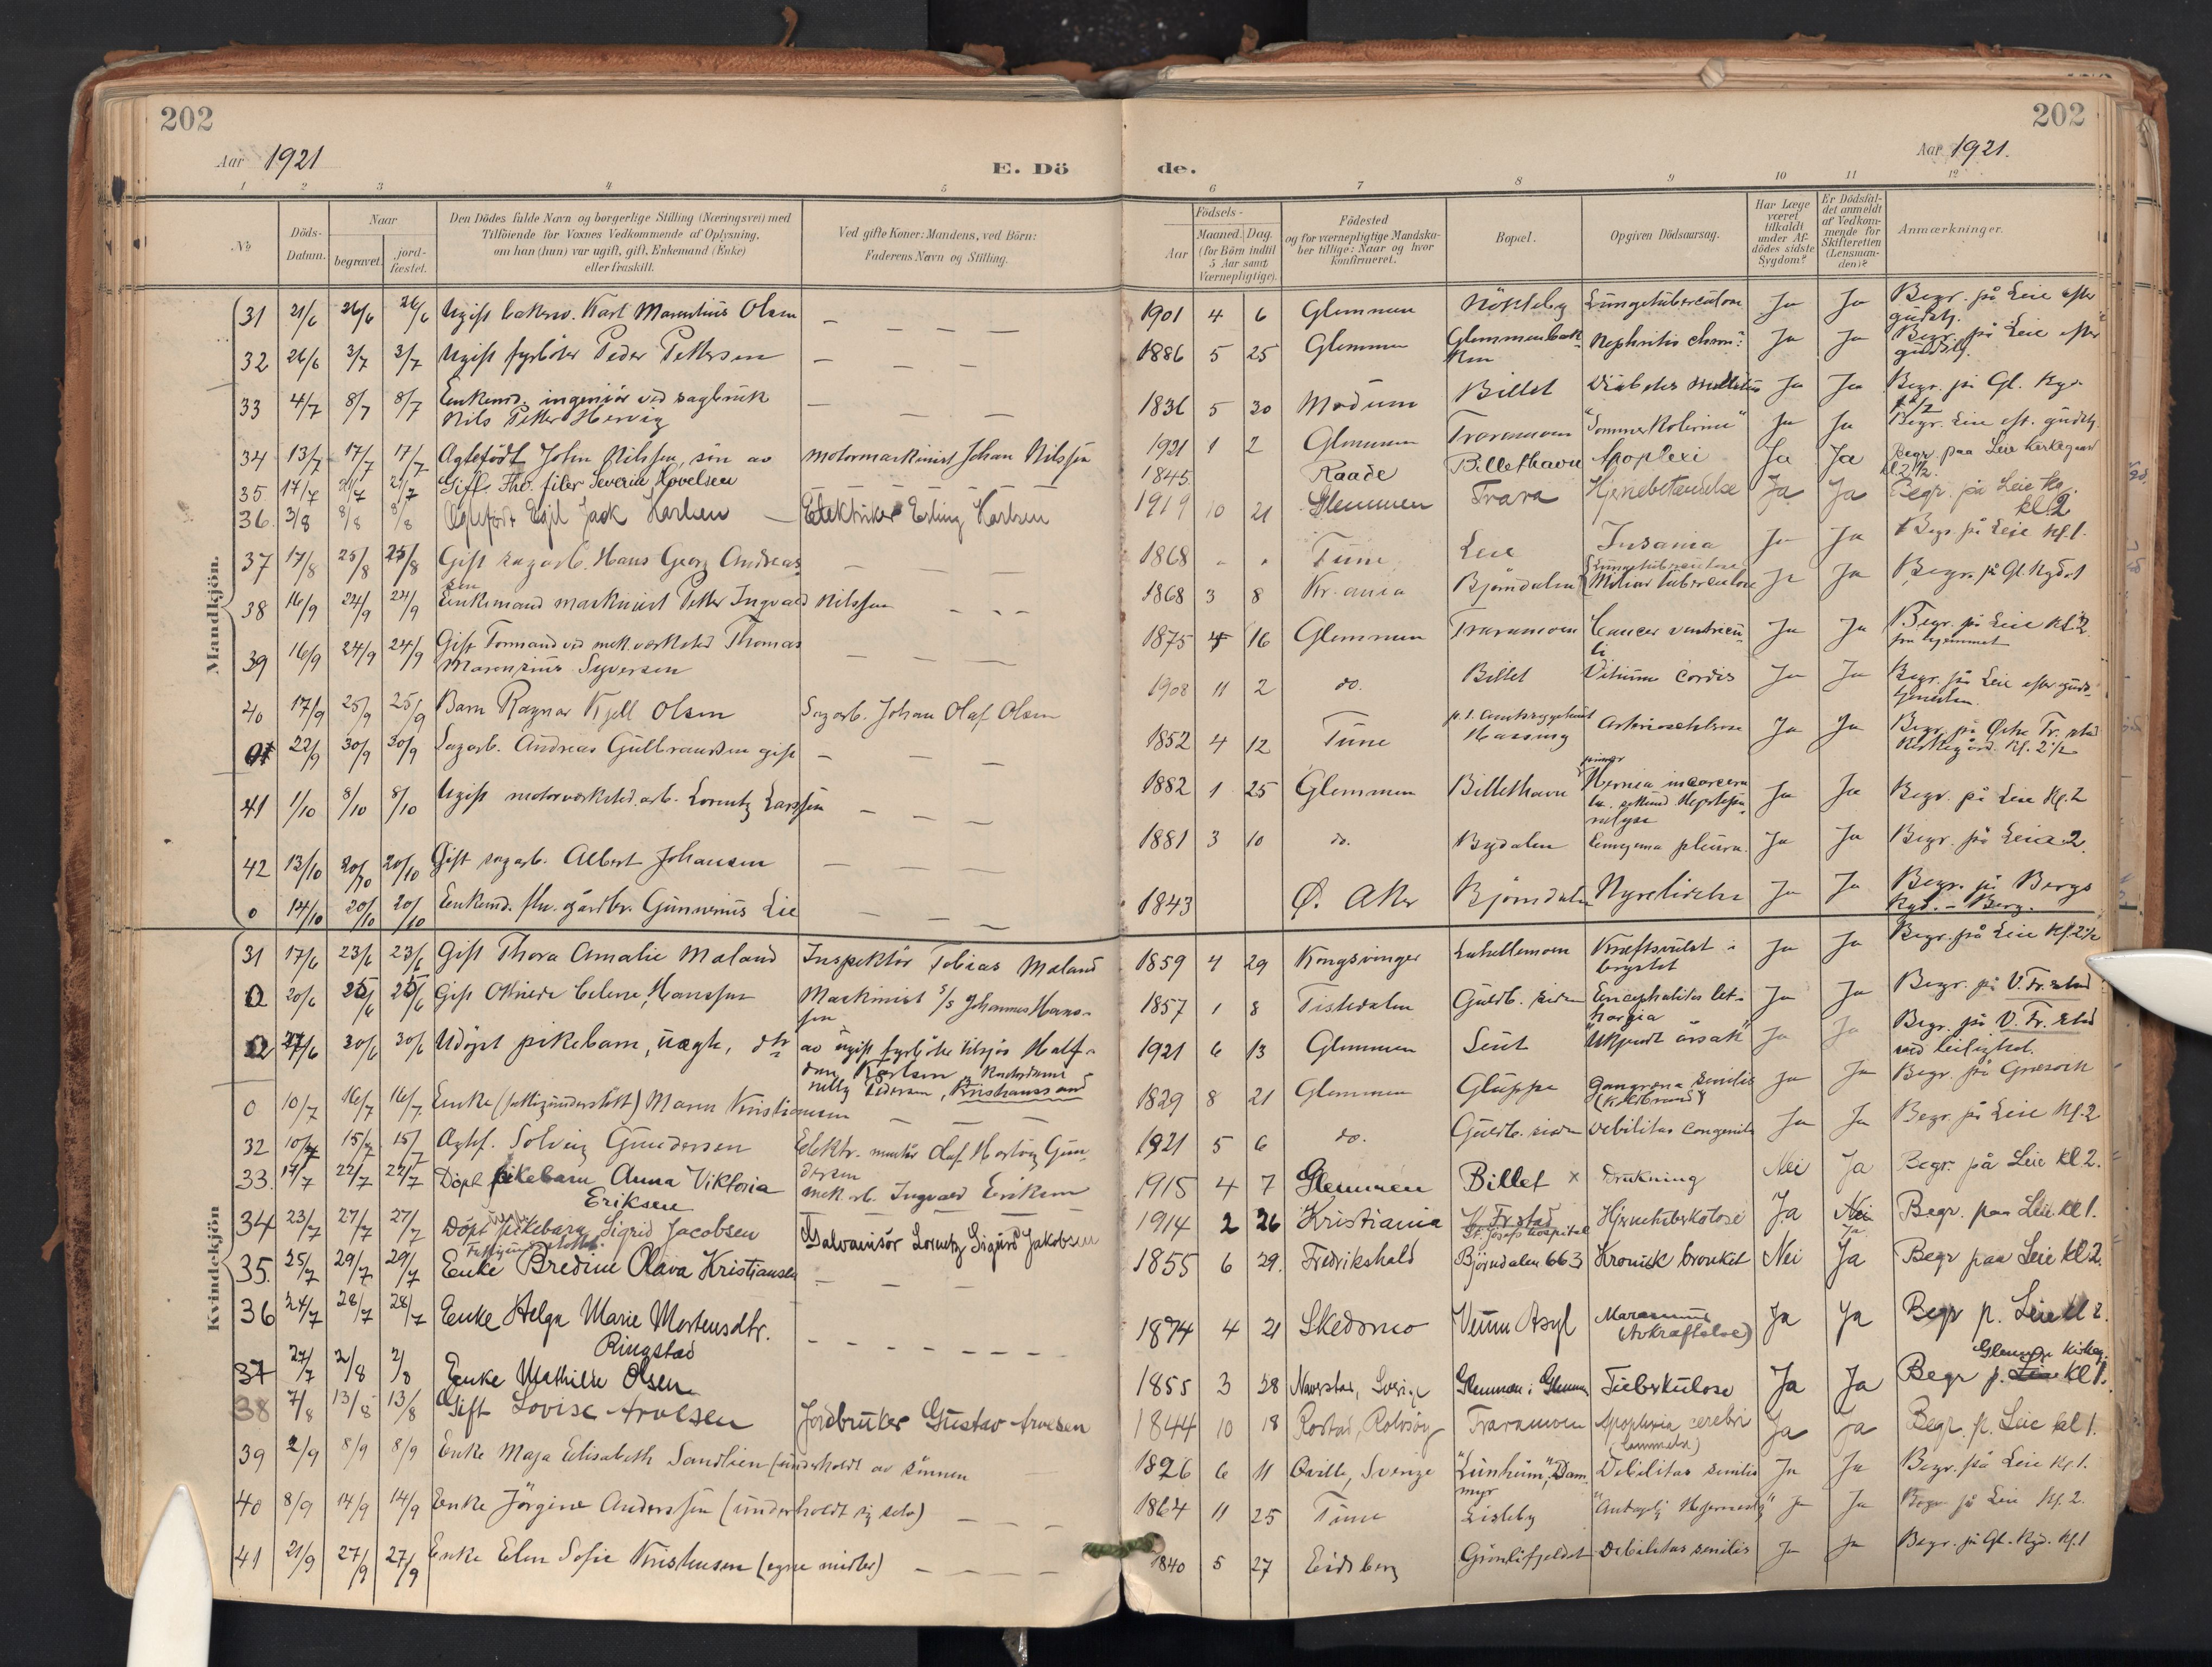 202
202
Aar 1921
E. Dö
de.
Aar 1921.
1 2 3 4 5 6 7 8 9 10 11 12
No
Döds-Datum.
Naar
begravet.
jord-fæstet.
Den Dödes fulde Navn og borgerlige Stilling (Næringsvei) med
Tilföiende for Voxnes Vedkommende af Oplysning,
om han (hun) var ugift, gift, Enkemand (Enke)
eller fraskilt.
Ved gifte Koner: Mandens, ved Börn:
Faderens Navn og Stilling.
Födsels-
Aar
Maaned. Dag.
(for Börn indtil
5 Aar samt
Værnepligtige).
Födested
og for værnepligtige Mandska-
ber tillige: Naar og hvor
konfirmeret.
Bopæl.
Opgiven Dödsaarsag.
Har Læge
været
tilkaldt
under Af-
dödes sidste
Sygdom?
Er Dödsfal-
det anmeldt
af Vedkom-
mende for
Skifteretten
(Lensman-
den)?
Anmærkninger.
Mandkjön.
31 21/6 26/6 26/6 Ugift Karl Marentius Olsen 1901 4 6 Glemmen Nökleby Lungetuberculose Ja Ja Begr. på Leie efter
gudstj.
32 26/6 3/7 3/7 Ugift fyrböter Peder Pettersen 1886 5 25 Glemmen Nephritis chron: Ja Ja Begr. på Leie efter
gudstj.
33 4/7 8/7 8/7 Enkemd. ingeniör ved sagbruk
Nils Petter Hervig 1836 5 30 Modum Billet Diabetes mellitus Ja Ja Begr. på Gl. Kgd.
34 13/7 17/7 17/7 Ægtefödt John Nilssen, sön av motormaskinist Johan Nilssen 1921 1 2 Glemmen Traramoen "Sommerkolerine" Ja Ja Begr. Leie eft. gudstj.
35 17/7 21/7 21/7 Gift Severin Hovelsen 1845 Raade Billethavn Apoplexi Ja Ja Begr. paa Leie kirkegaard
kl. 2 1/2.
36. 3/8 8/8 8/8 Ægtefödt Egil Jack Karlsen Elektriker Erling Karlsen 1919 10 21 Glemmen Trara Hjernebetændelse Ja Ja Begr. på Leie
kl. 2
37 17/8 25/8 25/8 Gift sagarb. Hans Georg Andreas-
sen 1868 Tune Leie Insania Ja Ja Begr. på Leie kl. 1.
38 16/9 24/9 24/9 Enkemand maskinist Petter Ingvald Nilssen 1868 3 8 Kr.ania Björndalen Lungetuberculose
Miliær tuberculose Ja Ja Begr. på Gl. Kgd.
39 16/9 24/9 24/9 Gift Formand ved mek. verksted Thomas
Marensius Syversen 1875 4 16 Glemmen Traramoen Cancer ventricu-
li Ja Ja Begr. på Leie kl. 2
fra hjemmet
40 17/9 25/9 25/9 Barn Ragnar Kjell Olsen Sagarb. Johan Olaf Olsen 1908 11 2 do. Billet Vitium cordis Ja Ja Begr. på Leie efter guds-
tjenesten.
0 22/9 30/9 30/9 Sagarb. Andreas Gulbrandsen gift 1852 4 12 Tune Arteriosclerose Ja Ja Begr. på Østre Fr.stad
Kirkegård. Kl. 2 1/2
41 1/10 8/10 8/10 Ugift motorverksted.arb. Lorentz Larssen 1882 1 25 Glemmen Billethavn Hernia incarcera Ja Ja Begr. på Leie kl. 2
42 13/10 20/10 20/10 Gift sagarb. Albert Johansen 1881 3 10 do. Bydalen Empyema pleura. Ja Ja Begr. på Leie 2.
0 14/10 20/10 20/10 Enkemd. fhv. gårdbr. Gunnerius Lie 1843 Ø. Aker Björndalen Nyrelidelse Ja Ja Begr. på Bergs
Kgd. - Berg.
Kvindekjön
31 17/6 23/6 23/6 Gift Thora Amalie Maland Inspektör Tobias Maland 1859 4 29 Kongsvinger Kræftsvulst i
brystet Ja Ja Begr. på Leie kl. 2 1/2
0 20/6 25/6 25/6 Gift Othilde Celene Hanssen Maskinist s/s Johannes Hans-
sen 1857 1 8 Tistedalen Guldb. siden Encephalitis let-
hargia Ja Ja Begr. på V. Fr.stad
0 27/6 30/6 30/6 Udöpt pikebarn, uægte, dtr av ugift fyrböter tilsjös Half-
dan Karlsen
Nelly Pedersen, Kristianssand 1921 6 13 Glemmen Seut "Ukjendt årsak" Ja Ja Begr. på V. Fr.stad
0 10/7 16/7 16/7 Enke (fattigunderstött) Maren Kristiansen 1829 8 21 Glemmen Gluppe Gangræna senilis
(Koldbrand) Ja Ja Begr. på Græsvik
32 10/7 15/7 15/7 Ægtf. Solveig Gundersen Elektr. montör Olaf Hartvig Gun-
dersen 1921 5 6 do. Guldb. siden Debilitas congenita Ja Ja Begr. på Leie kl. 2
33. 17/7 22/7 22/7 Döpt pikebarn Anna Viktoria
Eriksen mek. arb. Ingvald Eriksen 1915 4 7 Glemmen Billet x Drukning Nei Ja Begr. på Leie kl 2.
34 23/7 27/7 27/7 Döpt pikebarn Sigrid Jacobsen Galvanisör Lorentz Sigurd Jakobsen 1914 2 26 Kristiania Fr.stad
St. Josefs hospital Hjernetuberkulose Ja Nei
Ja Begr. paa Leie kl 1.
35. 25/7 29/7 29/7 Fattigunderstöttet.
Enke Bredine Olava Kristiansen 1855 6 29. Fredrikshald Björndalen 663 Kronisk bronkit Nei Ja Begr paa Leie kl 2.
36 24/7 28/7 28/7 Enke Helga Marie Mortensdtr.
Ringstad 1874 4 21 Skedsmo Veum Asyl Marasmus
(Avkræftelse) Ja Ja Begr p. Leie kl 2.
37 27/7 2/8 2/8 Enke Mathilde Olsen 1855 3 28 Glemmen Tuberkulose Ja Ja Glemmen kirkeg.
Begr p. Leie kl 1.
38 7/8 13/8 13/8 Gift Lovise Arvesen Jordbruker Gustav Arvesen 1844 10 18 Rostad, Rolvsöy Traramoen Apoplexia cerebri Ja Ja Begr. p. Leie kl 1.
39 2/9 8/9 8/9 Enke Maja Elisabeth Sandlien (underholdt av sönnen 1826 6 11 Qville, Sverige "Lunheim", Dam
myr Debilitas senilis Ja Ja Begr. på Leie kl. 1.
40 8/9 14/9 14/9 Enke Jörgine Anderssen (underholdt sig selv) 1864 11 25 Tune Lisleby Ja Ja Begr på Leie kl. 2.
41 21/9 27/9 27/9 Enke Elen Sofie Kristensen (egne midler) 1840 5 27 Eidsberg Grönlifjeldet Debilitas senilis Ja Ja Begr. på Gl. Kgd. Kl. 1